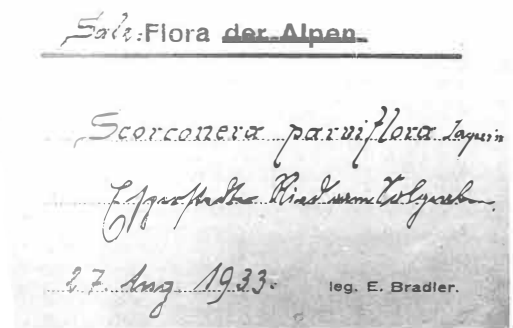 Salz-Flora der Alpen.
Scorconera parviflora Jaquin
Esperstedter Ried am Solgraben.
27. Aug 1933. leg. E. Bradler.